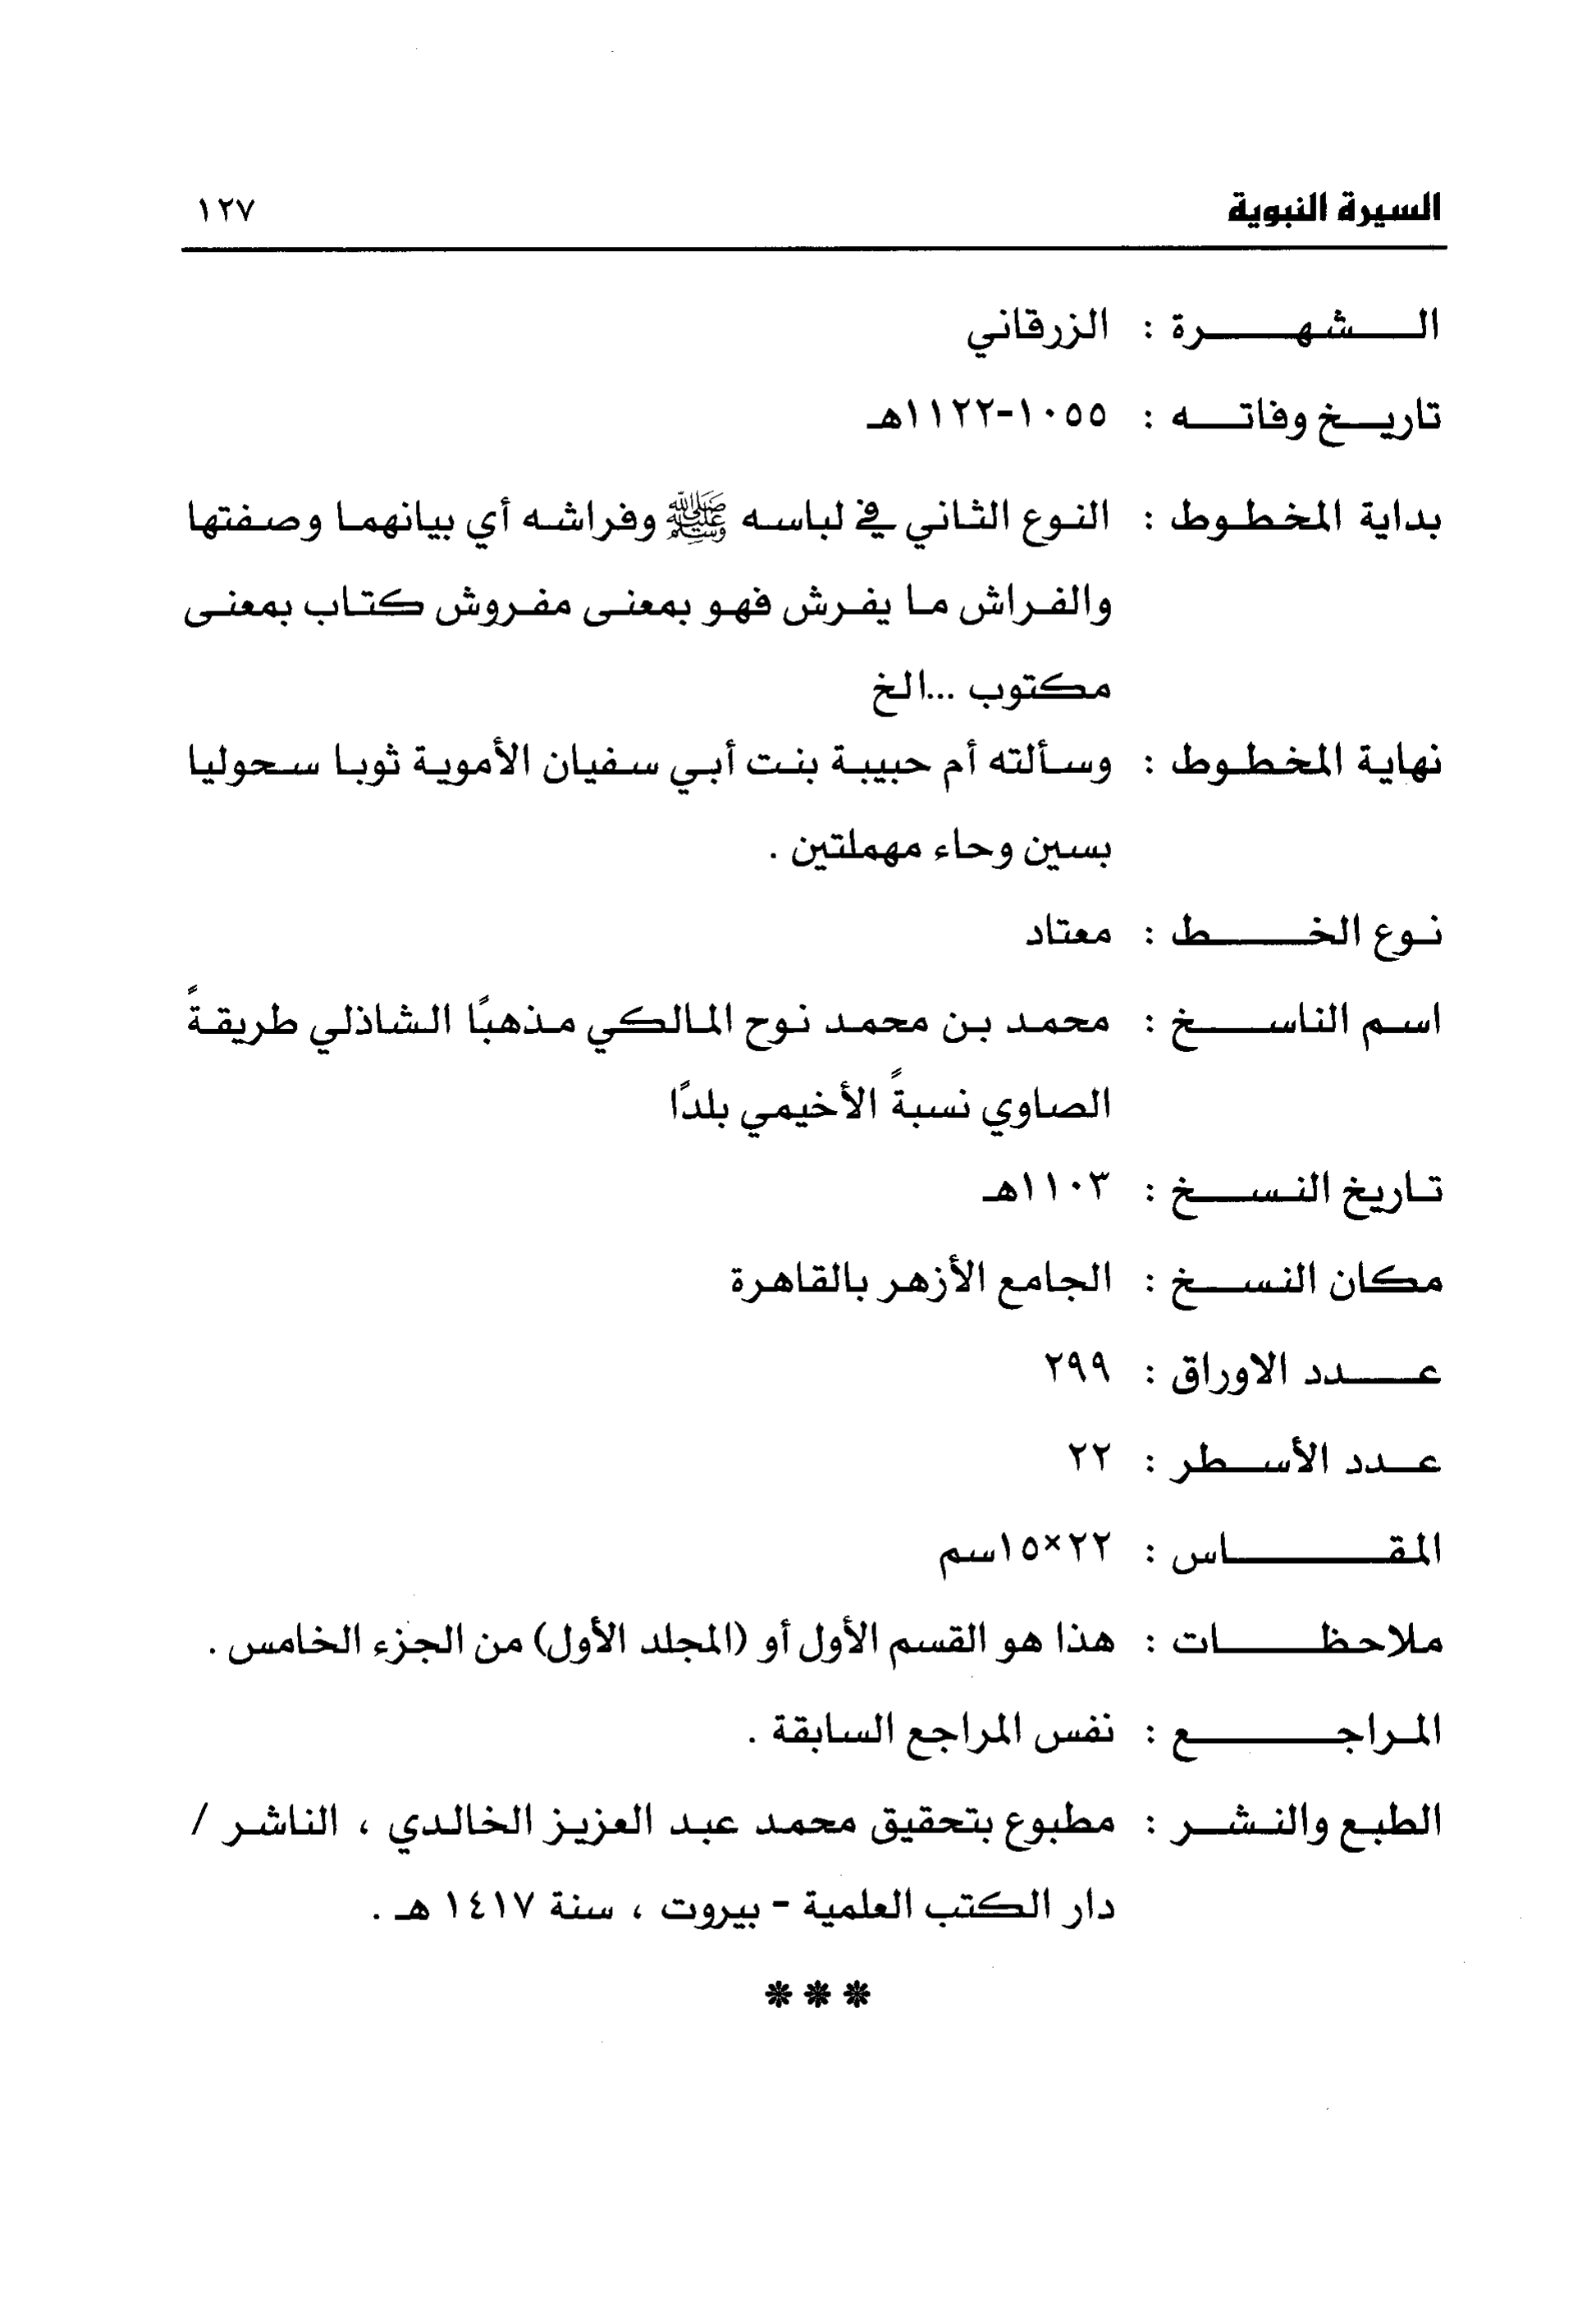 السيرة النبوية ١٢٧
الشهرة : الزرقاني
تاريخ وفاته : ١٠٥٥-١١٢٢هـ
بداية المخطوط : النوع الثاني في لباسه ﷺ وفراشه أي بيانهما وصفتها
والفراش ما يفرش فهو بمعنى مفروش كتاب بمعنى
مكتوب ...الخ
نهاية المخطوط : وسألته أم حبيبة بنت أبي سفيان الأموية ثوبا سحوليا
بسين وحاء مهملتين .
نوع الخط : معتاد
اسم الناسخ : محمد بن محمد نوح المالكي مذهبًا الشاذلي طريقةً
الصاوي نسبةً الأخيمي بلدًا
تاريخ النسخ : ١١٠٣هـ
مكان النسخ : الجامع الأزهر بالقاهرة
عدد الاوراق : ٢٩٩
عدد الأسطر : ٢٢
المقاس : ٢٢×١٥سم
ملاحظات : هذا هو القسم الأول أو (المجلد الأول) من الجزء الخامس .
المراجع : نفس المراجع السابقة .
الطبع والنشر : مطبوع بتحقيق محمد عبد العزيز الخالدي ، الناشر /
دار الكتب العلمية - بيروت ، سنة ١٤١٧ هـ .
***